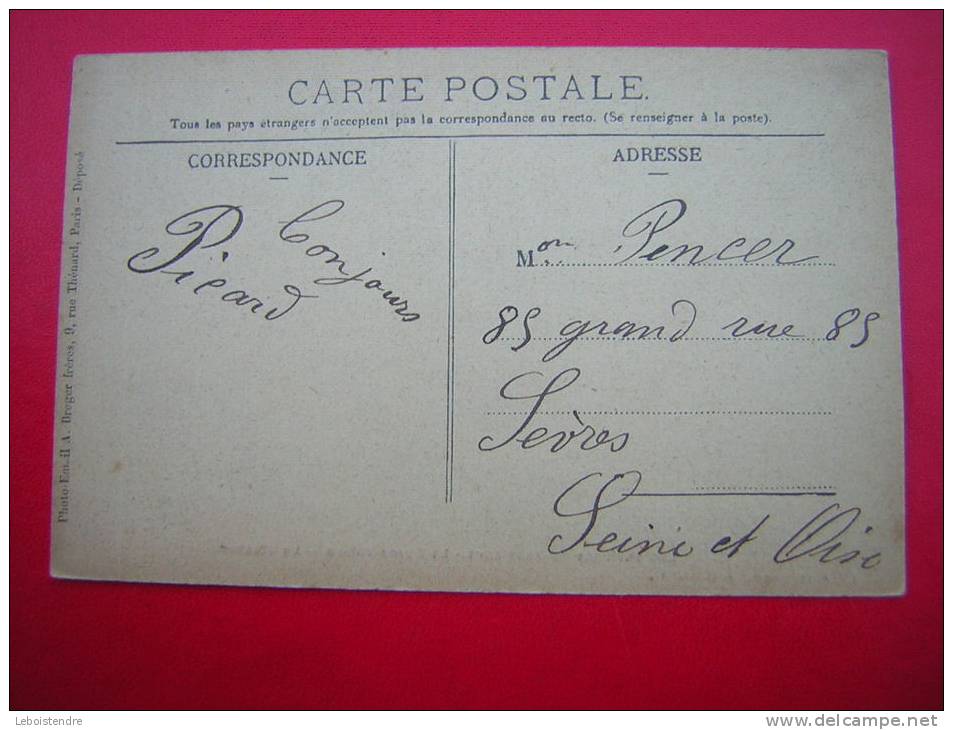 CARTE POSTALE.
Tous les pays étrangers n'acceptent pas la correspondance au recto. (Se renseigner à la poste).
CORRESPONDANCE
Bonjours
Picard
ADRESSE
Mon Pencer
85 grand rue 85
Sèvres
Seine et Oise
Photo-Email A. Breger frères, 9, rue Thénard, Paris - Déposé
Leboistendre
www.delcampe.net